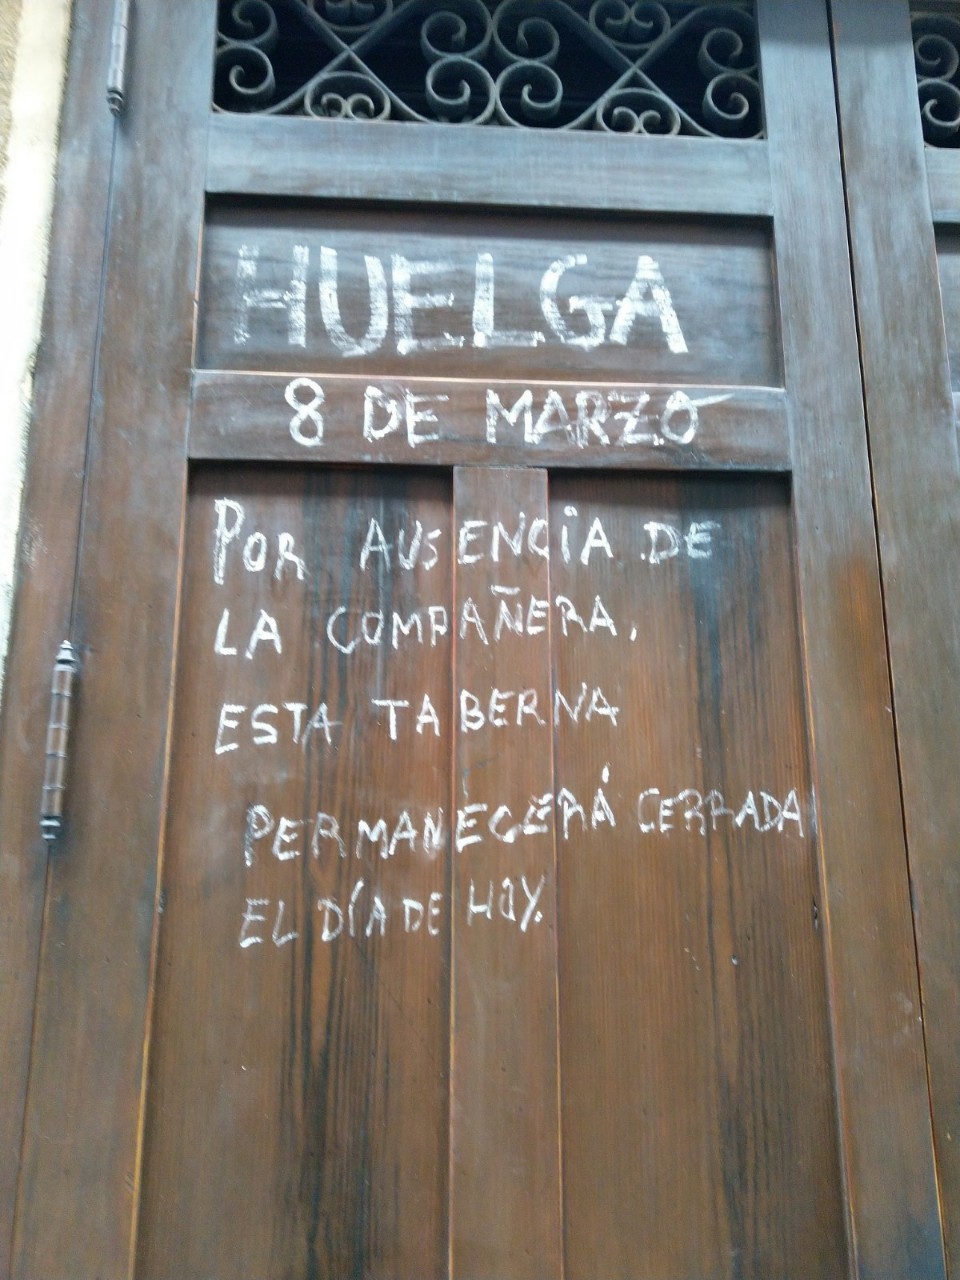 HUELGA
8 DE MARZO
POR AUSENCIA DE
LA COMPAÑERA,
ESTA TABERNA
PERMANECERÁ CERRADA
EL DÍA DE HOY.